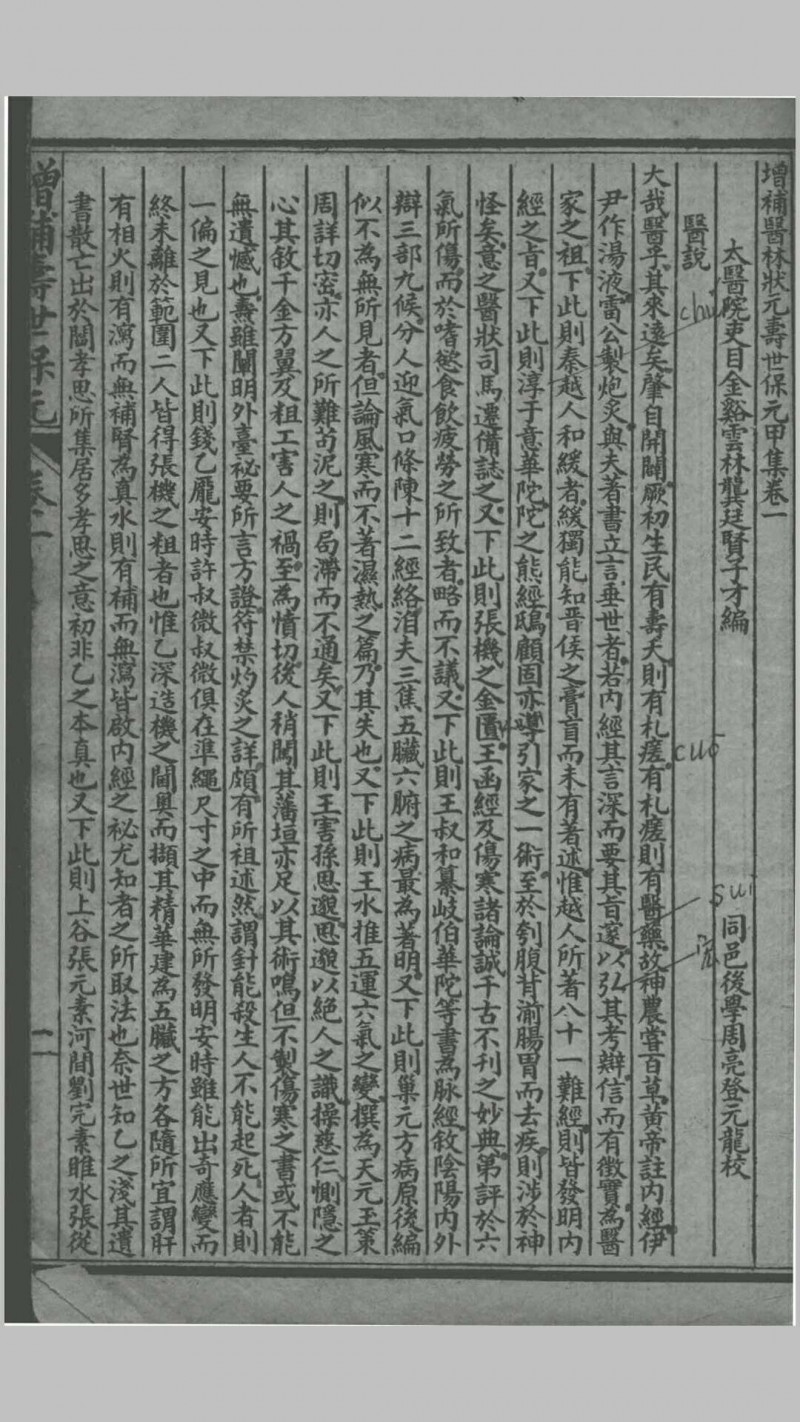 增補醫林狀元壽世保元甲集卷一
太醫院吏目金谿雲林龔廷賢子才編
同邑後學周亮登元龍校
醫說
大哉醫乎其來遠矣肇自開闢厥初生民有壽夭則有札瘥有札瘥則有醫藥故神農嘗百草黃帝註內經伊
尹作湯液雷公製炮炙與夫著書立言垂世者若內經其言深而要其旨邃以弘其考辯信而有徵實為醫
家之祖下此則秦越人和緩者緩獨能知晉侯之膏肓而未有著述惟越人所著八十一難經則皆發明內
經之旨又下此則淳于意華陀陀之熊經鴟顧固亦導引家之一術至於刳腹背湔腸胃而去疾則涉於神
怪矣意之醫狀司馬遷備誌之又下此則張機之金匱玉函經及傷寒諸論誠千古不刊之妙典第評於六
氣所傷而於嗜慾食飲疲勞之所致者略而不議又下此則王叔和纂岐伯華陀等書為脉經敘陰陽內外
辯三部九候分人迎氣口條陳十二經絡洎夫三焦五臟六腑之病最為著明又下此則巢元方病原後編
似不為無所見者但論風寒而不著濕熱之篇乃其失也又下此則王水推五運六氣之變撰為天元玉策
周詳切密亦人之所難苟泥之則局滯而不通矣又下此則王害孫思邈思邈以絕人之識操慈仁惻隱之
心其敘千金方翼及粗工害人之禍至為憤切後人稍闖其藩垣亦足以其術鳴但不製傷寒之書或不能
無遺憾也燾雖闡明外臺祕要所言方證符禁灼炙之詳頗有所祖述然謂針能殺生人不能起死人者則
一偏之見也又下此則錢乙龐安時許叔微叔微俱在準繩尺寸之中而無所發明安時雖能出奇應變而
終未離於範圍二人皆得張機之粗者也惟乙深造機之閫奧而擷其精華建為五臟之方各隨所宜謂肝
有相火則有瀉而無補腎為真水則有補而無瀉皆啟內經之祕尤知者之所取法也奈世知乙之淺其遺
書散亡出於閻孝思所集居多孝思之意初非乙之本真也又下此則上谷張元素河間劉完素睢水張從
增補壽世保元
卷一
一
chu
cuō
suì